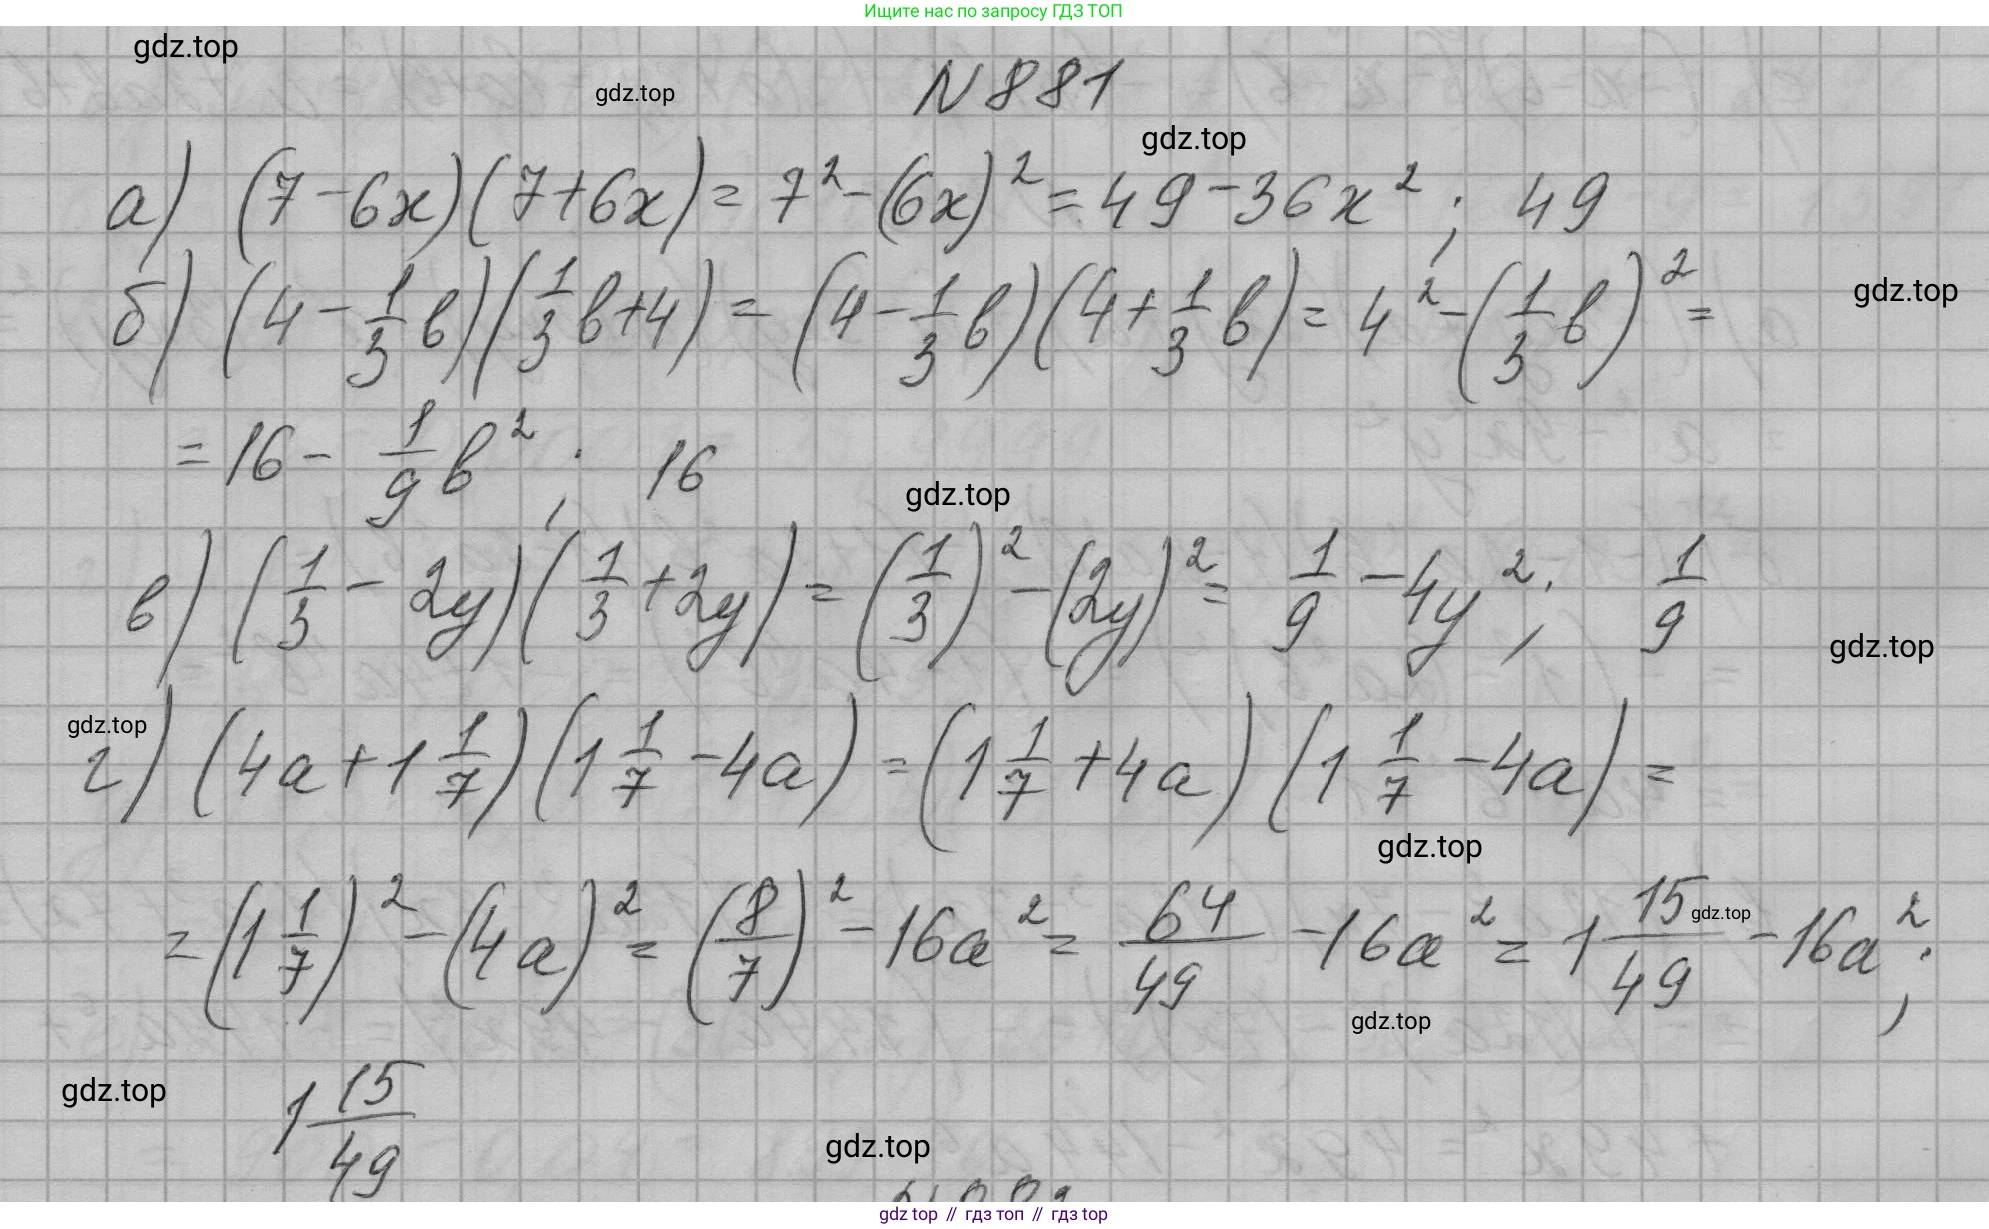 Ищите нас по запросу ГДЗ ТОП
gdz.top
gdz.top
N 881
gdz.top
а) (7-6x)(7+6x)= 7²-(6x)²=49-36x²; 49
б) (4-1/3в)(1/3в+4)=(4-1/3в)(4+1/3в)=4²-(1/3в)²=
gdz.top
=16-1/9в²; 16
gdz.top
в) (1/3-2y)(1/3+2y)=(1/3)²-(2y)²=1/9-4y²; 1/9
gdz.top
gdz.top
г) (4a+1 1/7)(1 1/7-4a)=(1 1/7+4a)(1 1/7-4a)=
gdz.top
=(1 1/7)²-(4a)²=(8/7)²-16a²=64/49-16a²=1 15/49-16a²;
gdz.top
gdz.top
gdz.top
1 15/49
gdz.top
gdz top // гдз топ // гдз top